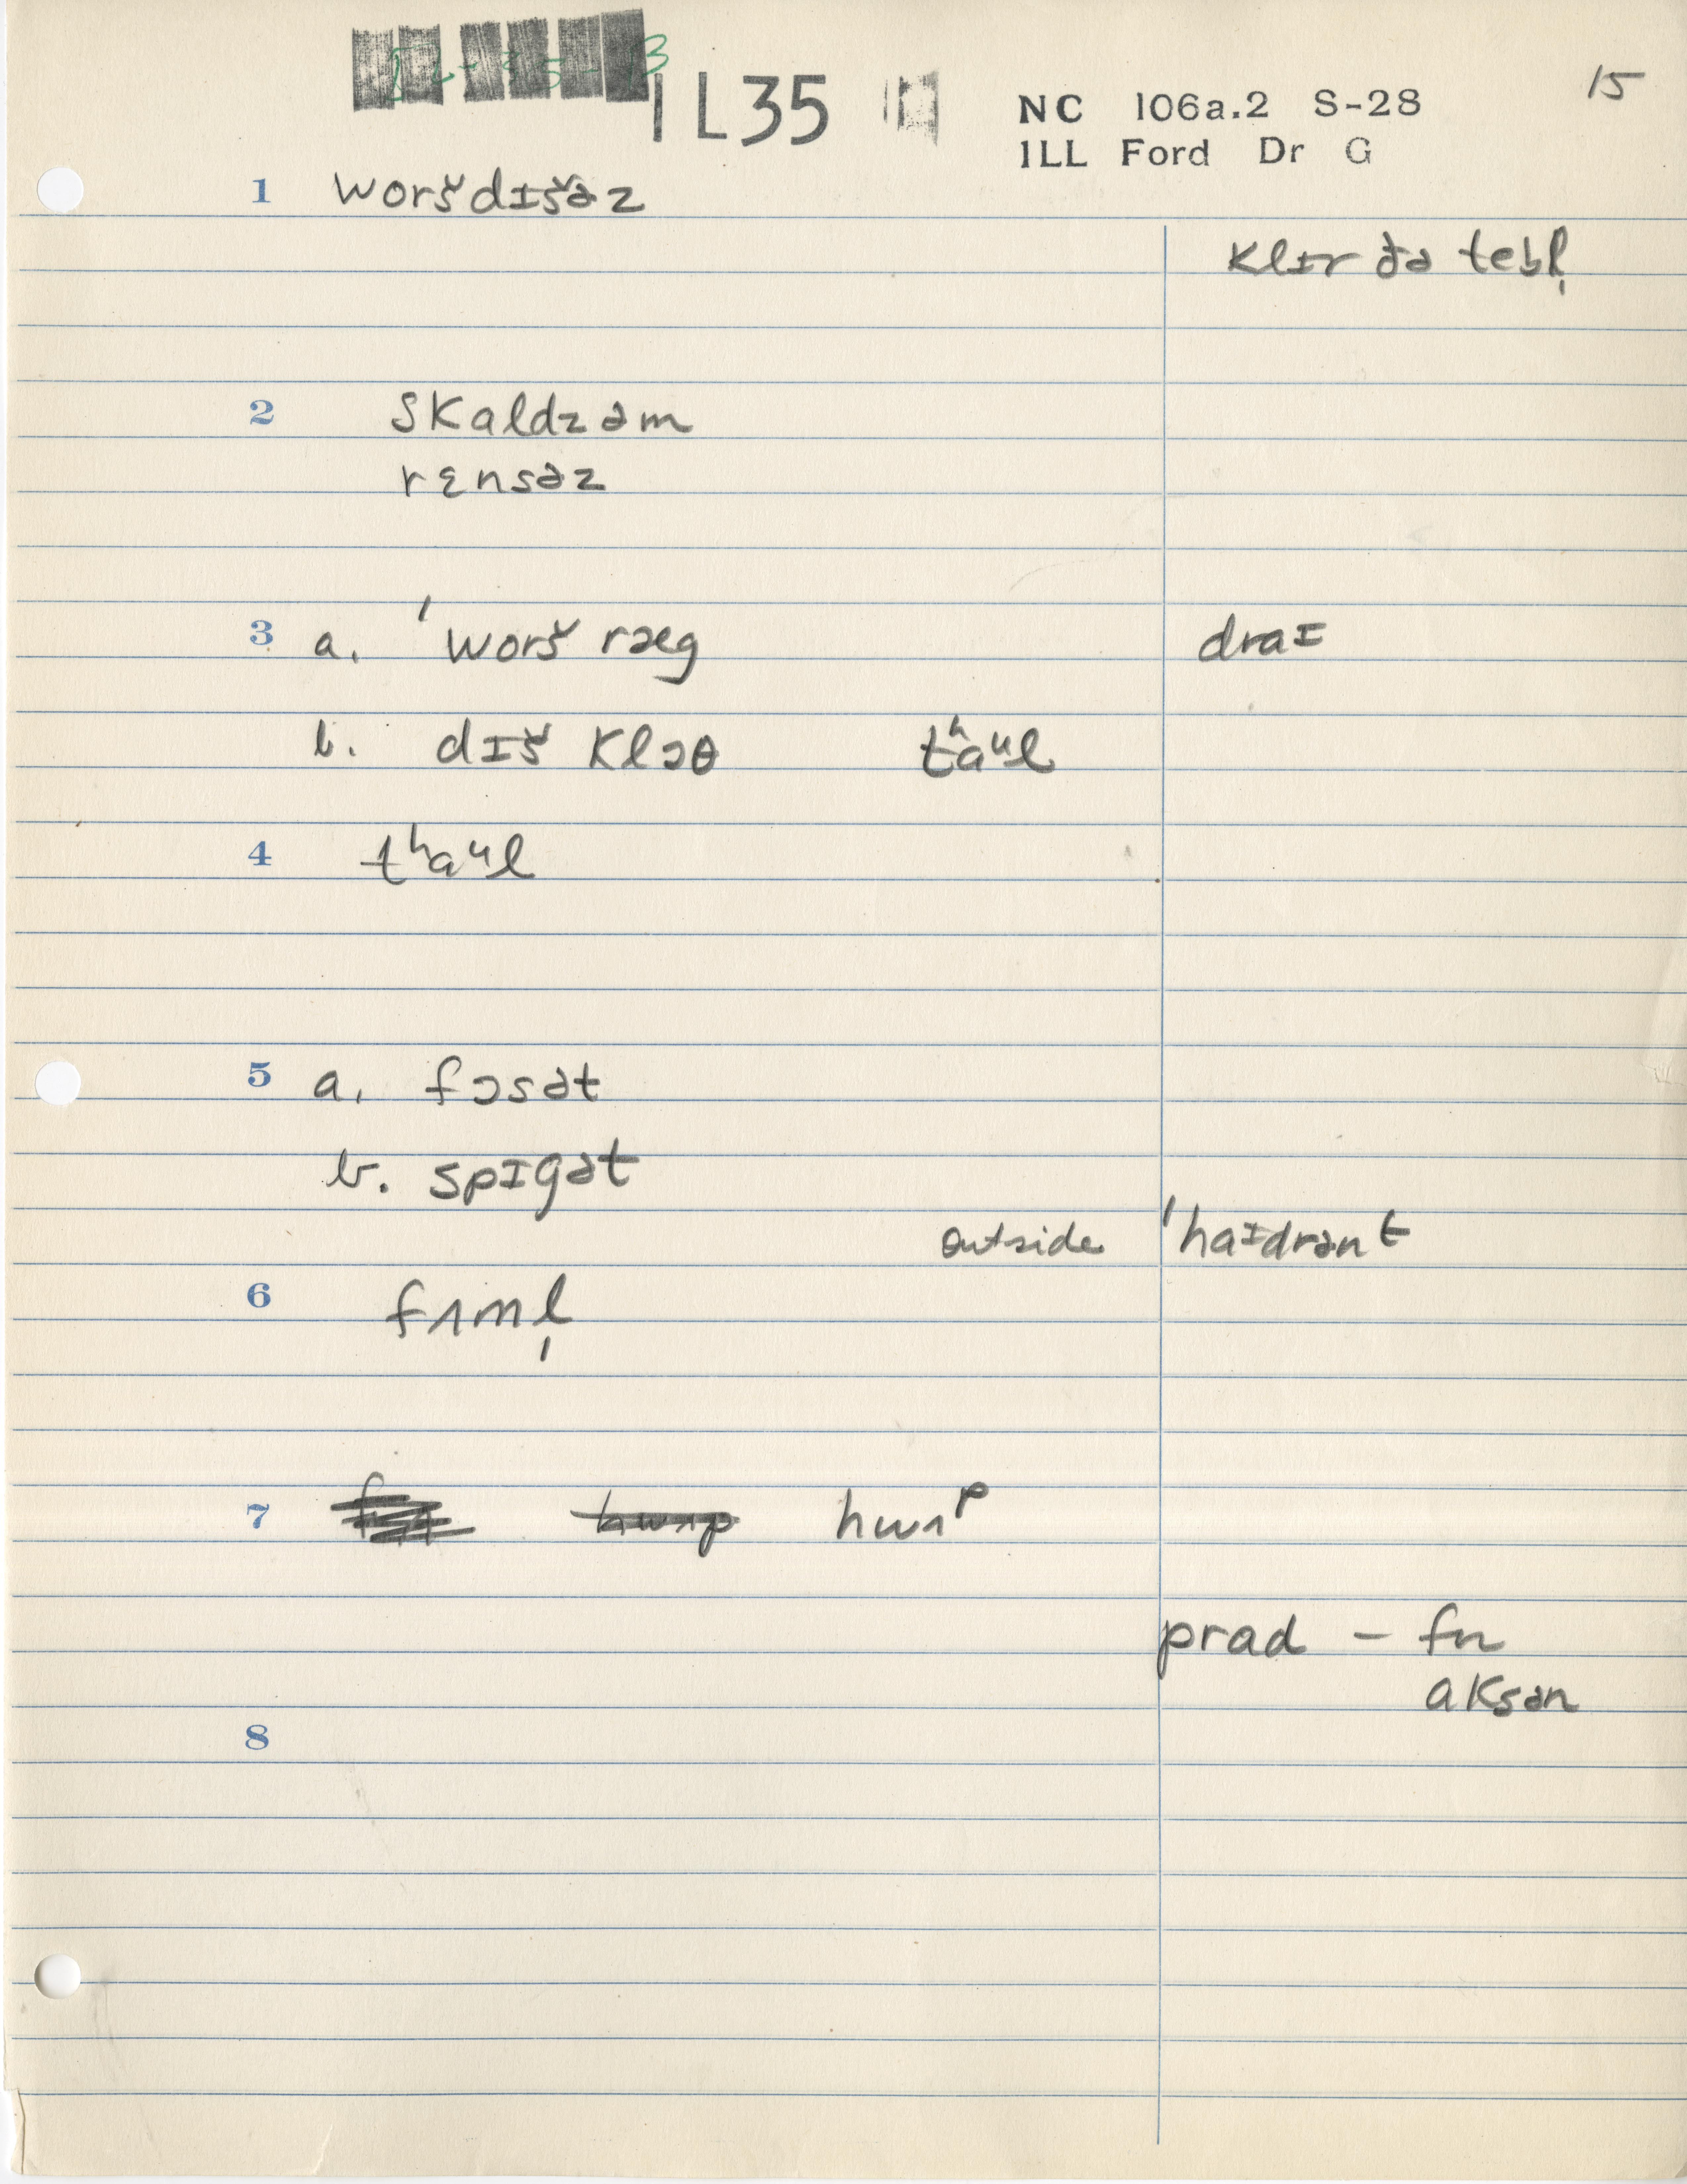 1L35 NC 106a.2 S-28 15
ILL Ford Dr G
1 woršdɪšəz
klɪr ðə tebl̩
2 skaldzəm
rɛnsəz
3 a. 'worš ræg draɪ
b. dɪš klɔθ tʰaᵘl
4 tʰaᵘl
5 a. fɔsət
b. spɪgət
outside 'haɪdrənt
6 fʌml̩
7 hwʌp hwʌᵖ
prad – fn
aksən
8